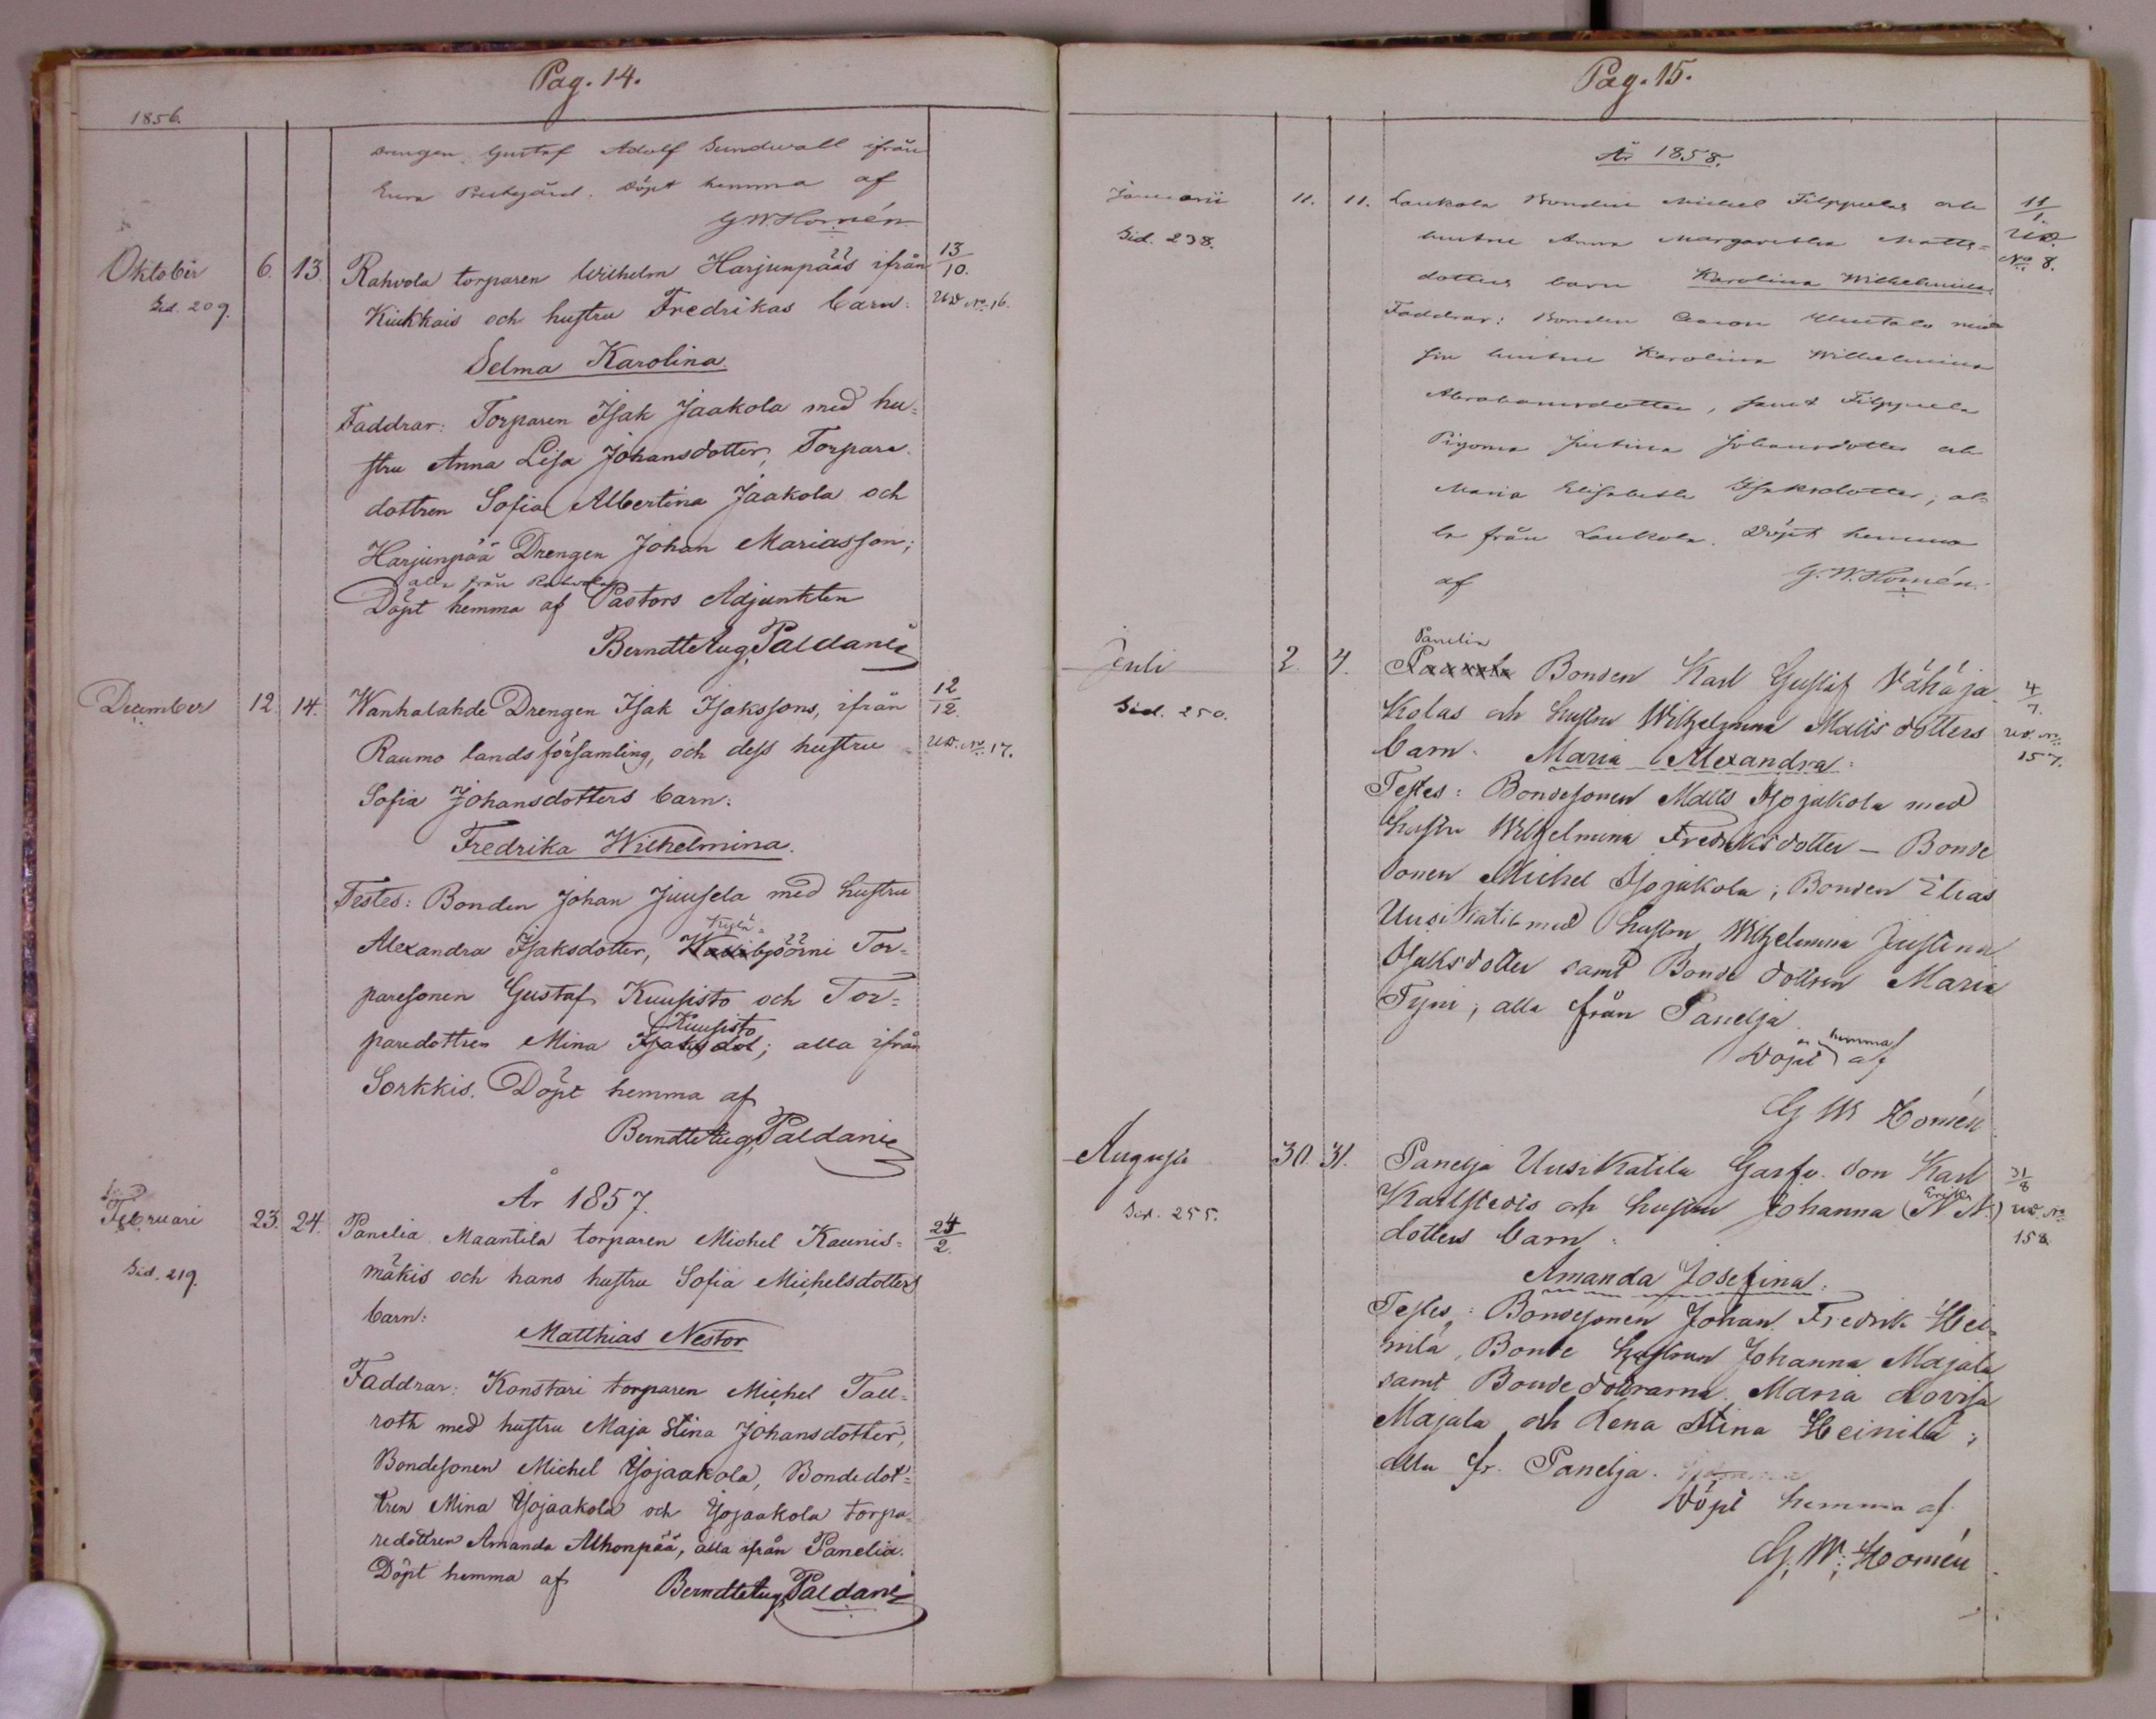 Pag. 14.
1856.
Drengen Gustaf Adolf Sundwall ifrån
Eura Prestegård. Döpt hemma af
G. W. Homén
Oktober 6. 13. Rahvola torparen Wilhelm Harjunpääs ifrån 13/10.
Sid. 209. Kiukkais och hustru Fredrikas barn: UB No 16.
Selma Karolina.
Faddrar: Torparen Isak Jaakola med hu-
stru Anna Lisa Johansdotter, Torpare
dottren Sofia Albertina Jaakola och
Harjunpää Drengen Johan Mariasson;
alla från Rahvola
Döpt hemma af Pastors Adjunkten
Berndt Aug. Paldani
December 12. 14. Wanhalahde Drengen Isak Isakssons, ifrån 12/12.
Raumo landsförsamling, och dess hustru UB. No 17.
Sofia Johansdotters barn:
Fredrika Wilhelmina.
Testes: Bonden Johan Juusela med hustru
Kylä-
Alexandra Isaksdotter, björni Tor-
paresonen Gustaf Kuusisto och Tor-
Kuusisto
paredottren Mina Isaksdot; alla ifrån
Sorkkis. Döpt hemma af
Berndt Aug. Paldani
År 1857.
Februari 23. 24. Panelia Maantila torparen Michel Kaunis- 24/2.
Sid. 219. mäkis och hans hustru Sofia Michelsdotters
barn:
Matthias Nestor
Faddrar: Konstari torparen Michel Tall-
roth med hustru Maja Stina Johansdotter,
Bondesonen Michel Isojaakola, Bondedot-
tren Mina Isojaakola och Isojaakola torpa-
redottren Amanda Alhonpää, alla ifrån Panelia.
Döpt hemma af Berndt Aug. Paldani
Pag. 15.
År 1858.
Januarii 11. 11. Laukola Bonden Michel Filppulas och 11/1.
Sid. 238. hustru Anna Margaretha Matts- UB.
dotters barn Karolina Wilhelmina. No 8.
Faddrar: Bonden Aaron med
sin hustru Karolina Wilhelmina
Abrahamsdotter, samt Filppula
Pigorna Justina Johansdotter och
Maria Elisabeth Isaksdotter; al-
la från Laukola. Döpt hemma
af G. W. Homén.
Panelia
Juli 2. 4. Bonden Karl Gustaf Vähäja- 4/7.
Sid. 250. kolas och hustru Wilhelmina Mattsdotters UB. No
barn: Maria Alexandra. 157.
Testes: Bondesonen Matts Isojakola med
hustru Wilhelmina Fredriksdotter – Bonde
sonen Michel Isojakola; Bonden Elias
Uusikatila med hustru Wilhelmina Justina
Isaksdotter samt Bonde dottren Maria
Tyni; alla från Panelja
Döpt hemma af
G W Homén
Augusti 30. 31. Panelja Uusikatila Gastv. son Karl 31/8
Eriks
Sid. 255. Karlstedts och hustru Johanna (N N.) UB. No
dotters barn: 158.
Amanda Josefina.
Testes: Bondesonen Johan Fredrik Hei-
nilä, Bonde hustrun Johanna Majala
samt Bondedöttrarna Maria Lovisa
Majala och Lena Stina Heinilä;
alla fr. Panelja.
Döpt hemma af
G. W. Homén